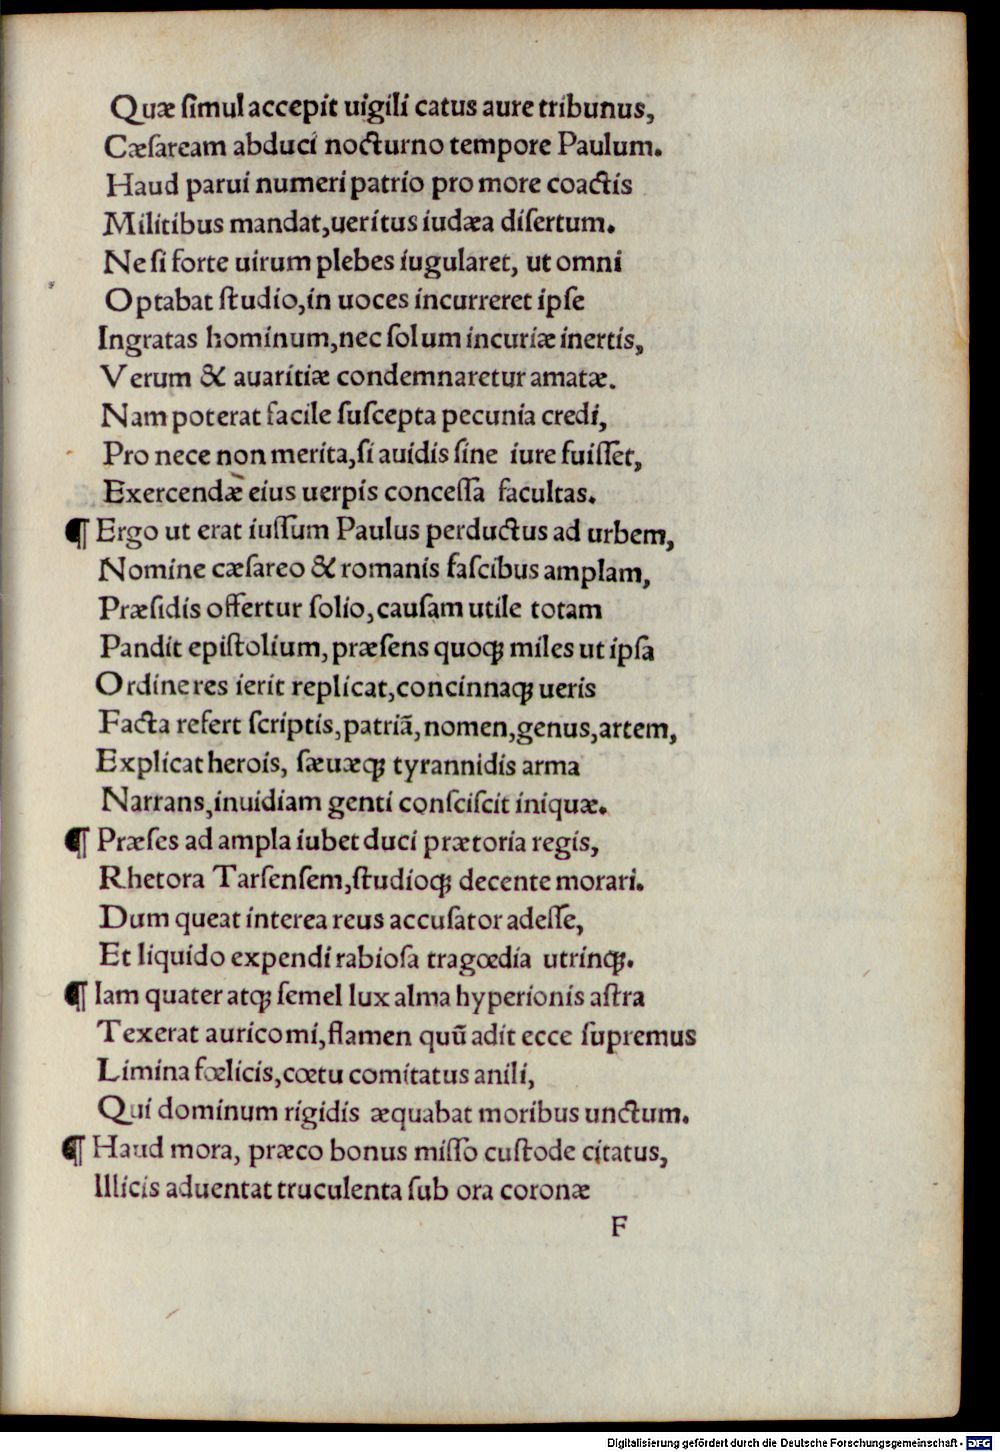 Quæ ſimul accepit uigili catus aure tribunus,
Cæſaream abduci nocturno tempore Paulum.
Haud parui numeri patrio pro more coactis
Militibus mandat,ueritus iudæa diſertum.
Ne ſi forte uirum plebes iugularet, ut omni
Optabat ſtudio,in uoces incurreret ipſe
Ingratas hominum,nec ſolum incuriæ inertis,
Verum & auaritiæ condemnaretur amatæ.
Nam poterat facile ſuſcepta pecunia credi,
Pro nece non merita,ſi auidis ſine iure fuiſſet,
Exercendæ eius uerpis conceſſa facultas.
¶ Ergo ut erat iuſſum Paulus perductus ad urbem,
Nomine cæſareo & romanis faſcibus amplam,
Præſidis offertur ſolio,cauſam utile totam
Pandit epiſtolium,præſens quoqꝫ miles ut ipſa
Ordine res ierit replicat,concinnaqꝫ ueris
Facta refert ſcriptis,patriā,nomen,genus,artem,
Explicat herois, ſæuæqꝫ tyrannidis arma
Narrans,inuidiam genti conſciſcit iniquæ.
¶ Præſes ad ampla iubet duci prætoria regis,
Rhetora Tarſenſem,ſtudioqꝫ decente morari.
Dum queat interea reus accuſator adeſſe,
Et liquido expendi rabioſa tragœdia utrinqꝫ.
¶ Iam quater atqꝫ ſemel lux alma hyperionis aſtra
Texerat auricomi,flamen quū adit ecce ſupremus
Limina fœlicis,cœtu comitatus anili,
Qui dominum rigidis æquabat moribus unctum.
¶ Haud mora, præco bonus miſſo cuſtode citatus,
Illicis aduentat truculenta ſub ora coronæ
F
Digitalisierung gefördert durch die Deutsche Forschungsgemeinschaft - DFG